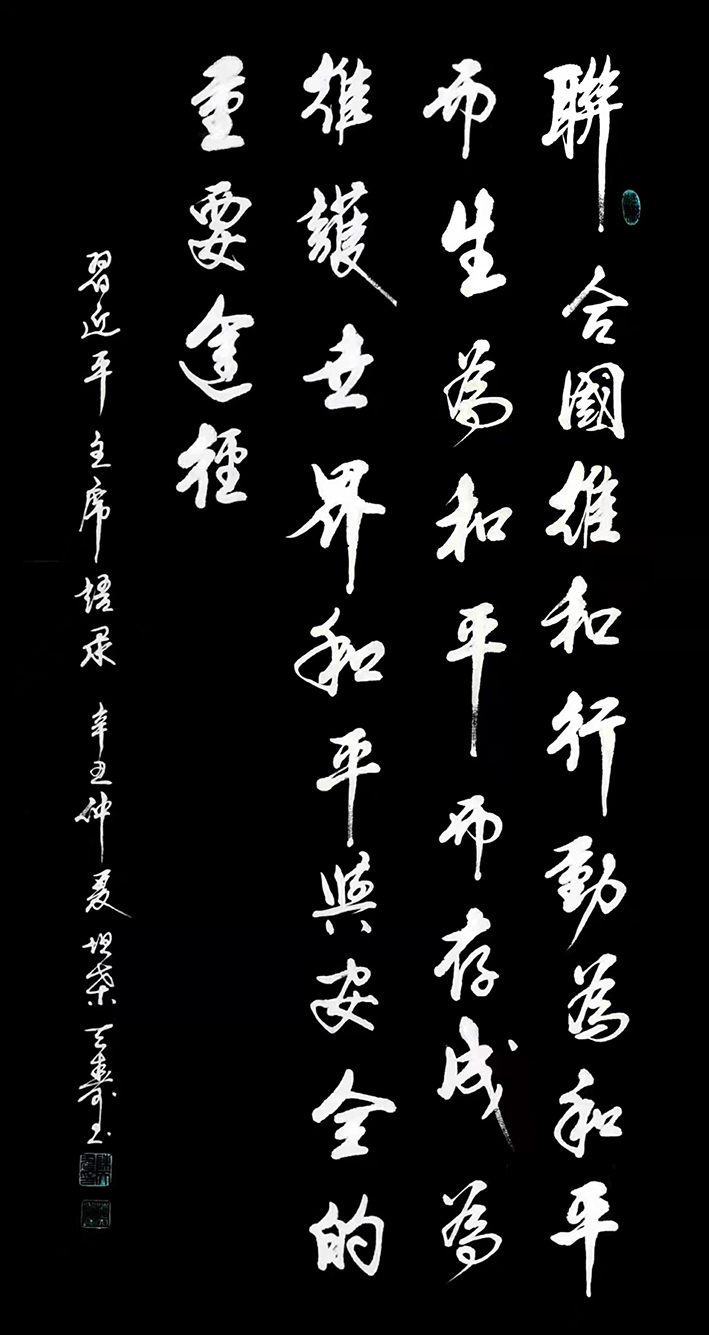 聯合國維和行動為和平
而生為和平而存成為
維護世界和平與安全的
重要途徑
習近平主席語录 辛丑仲夏